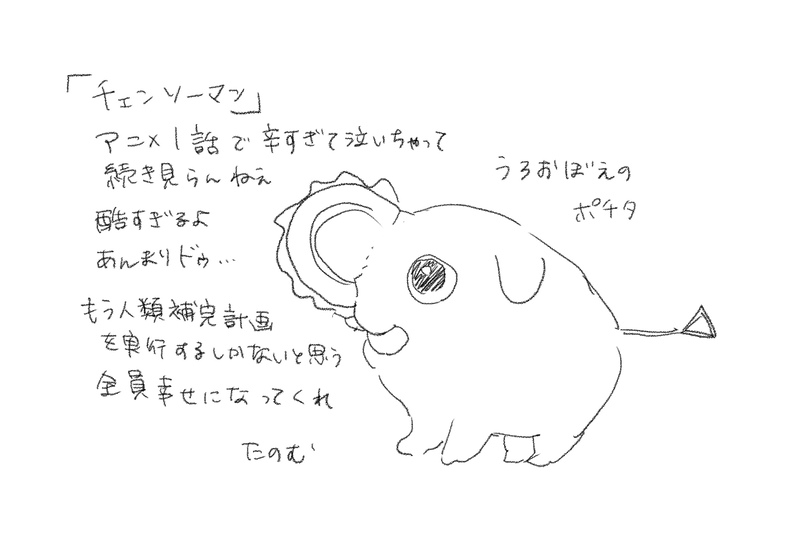 「チェンソーマン」
アニメ1話で辛すぎて泣いちゃって
続き見らんねぇ
酷すぎるよ
あんまりドゥ…
もう人類補完計画
を実行するしかないと思う
全員幸せになってくれ
たのむ
うろおぼえの
ポチタ